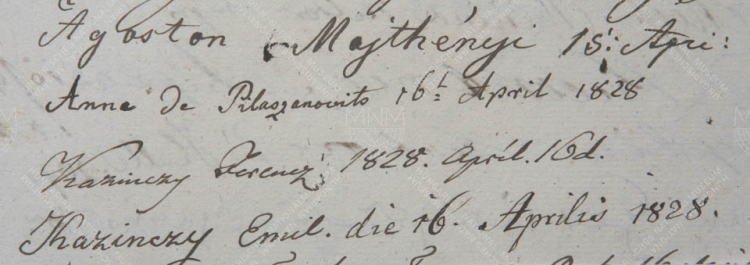 Ágoston Majthényi 15: Apr:
Anne de Pilaszanovits 16t April 1828
Kazinczy Ferencz, 1828. April. 16d.
Kazinczy Emil. die 16. Aprilis 1828.